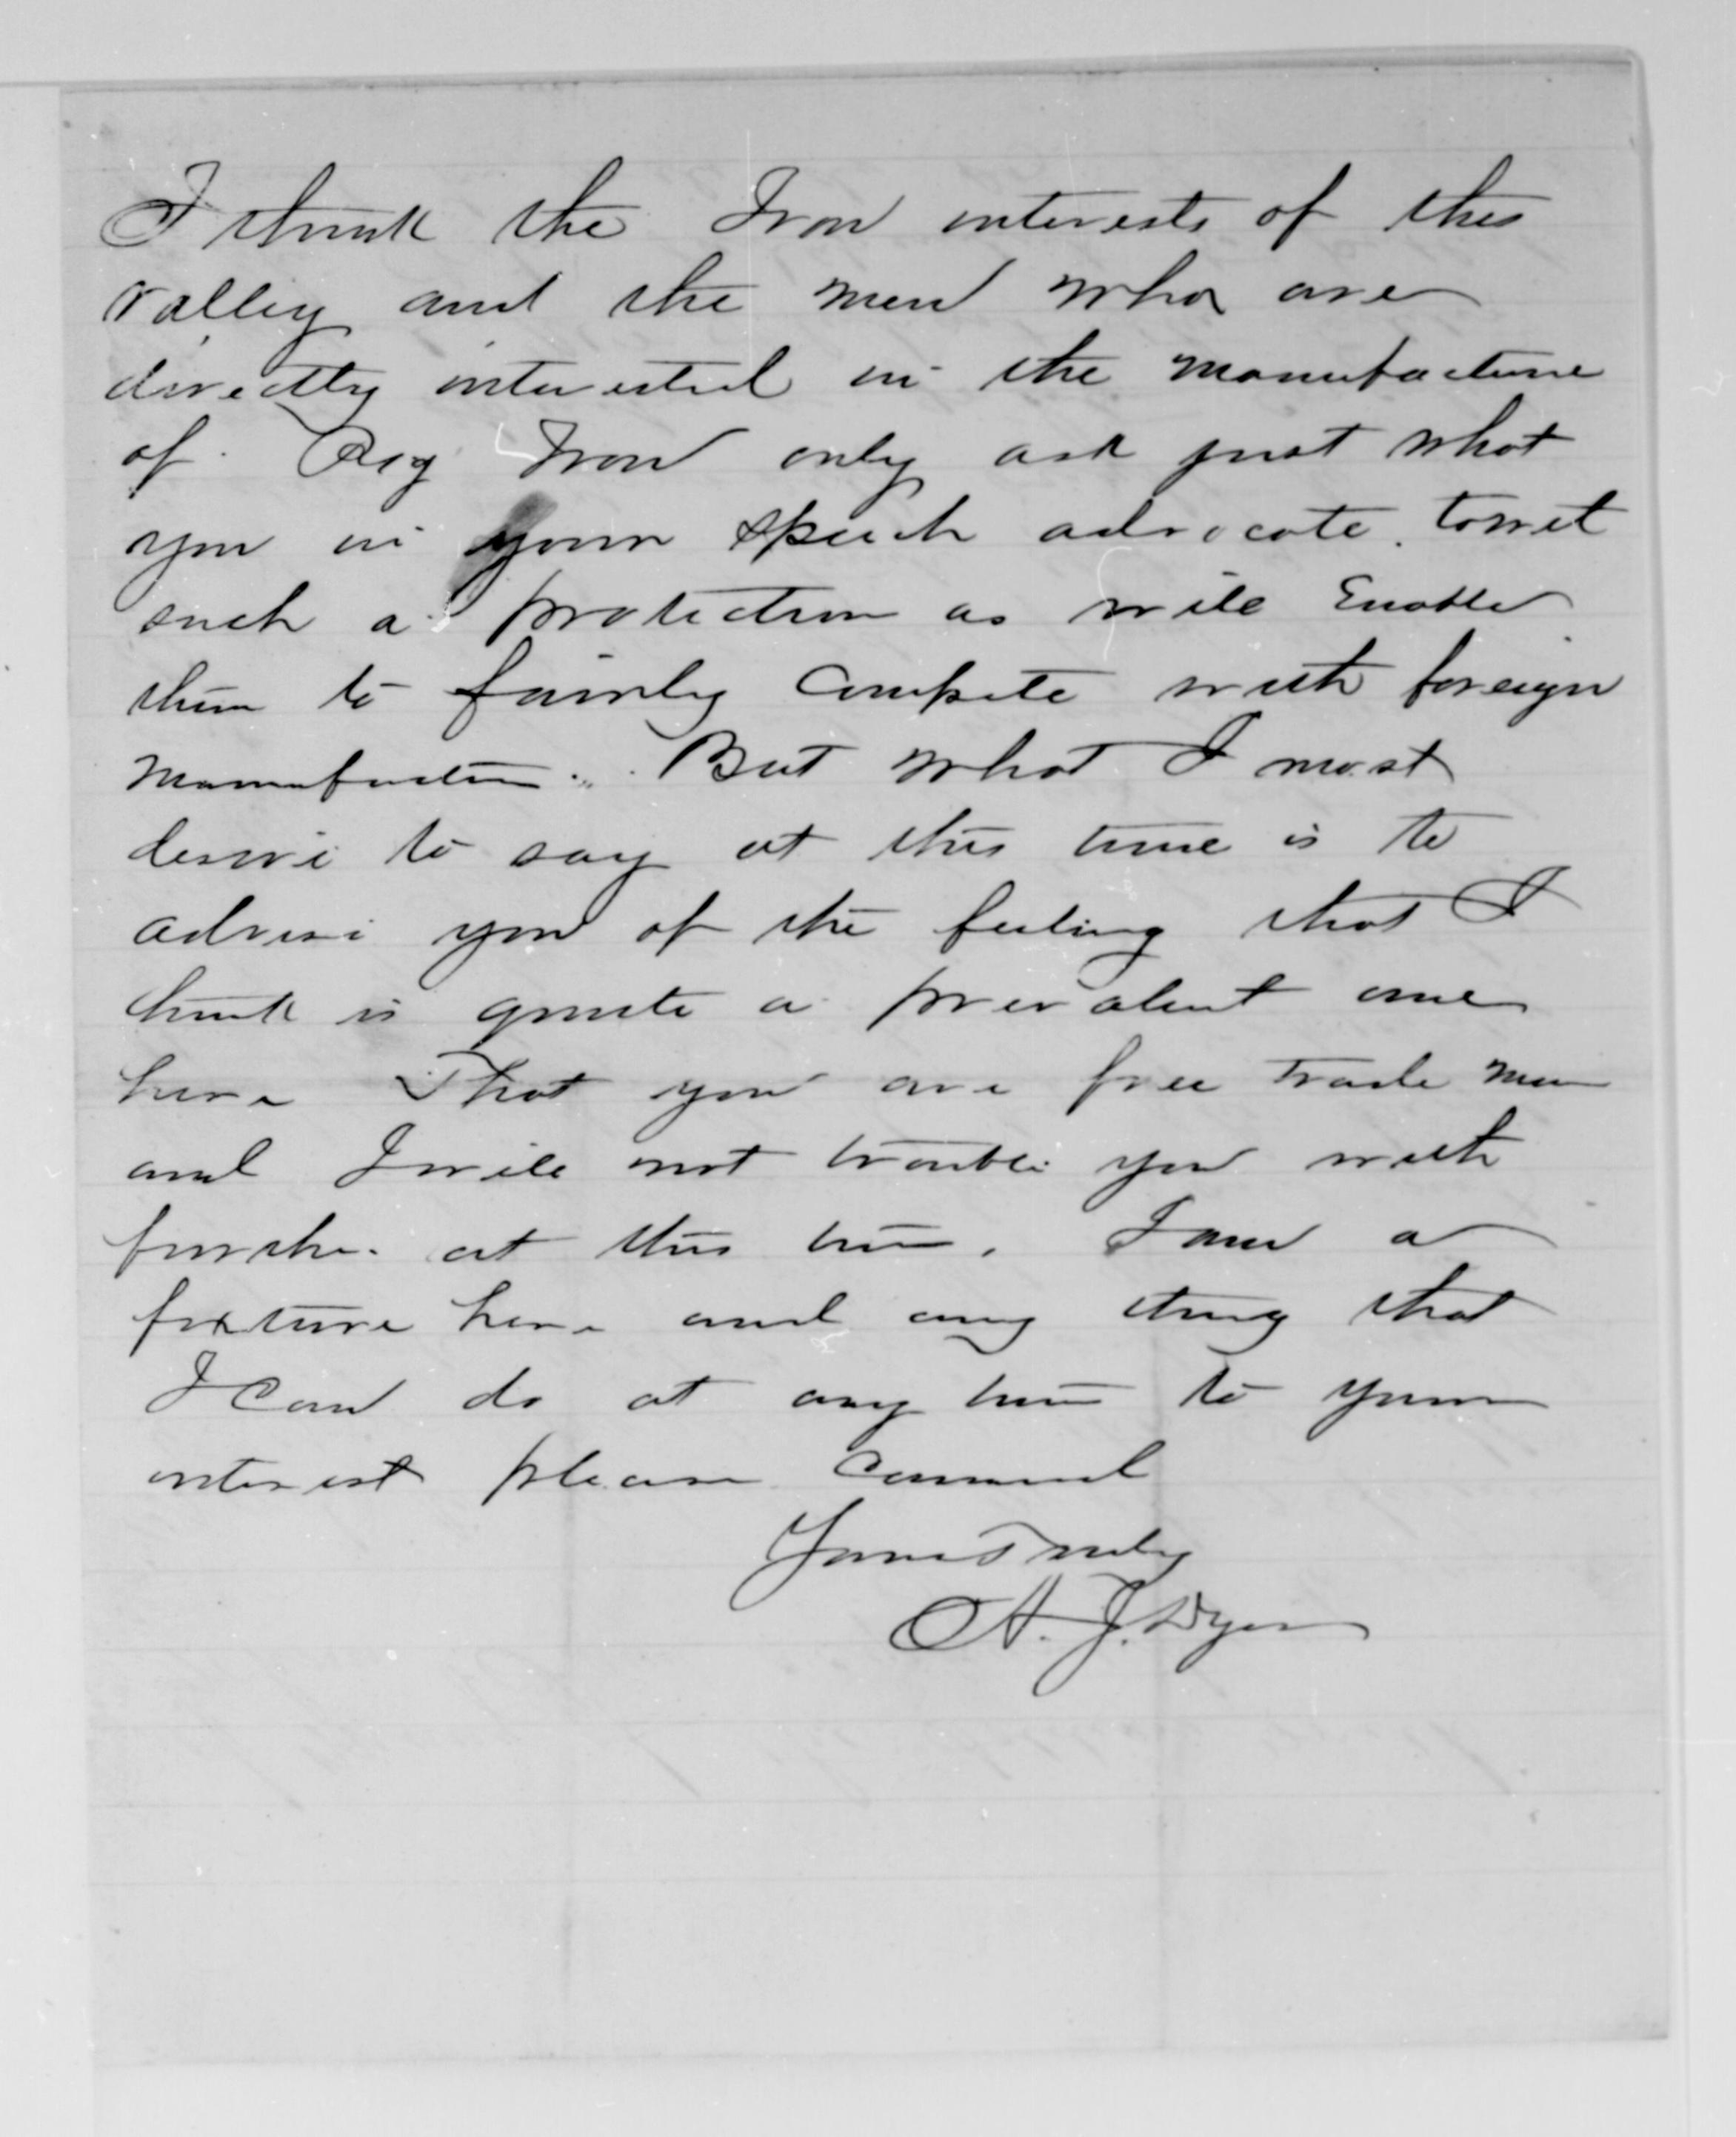 I think the Iron interests of this
valley and the men who are
directly interested in the manufacture
of Pig Iron only ask just what
you in your speech advocate. towit
such a protection as will Enable
them to fairly compete with foreign
manufacture. But what I most
desire to say at this time is to
advise you of the feeling that I
think is quite a prevalent one
here That you are free trade man
and I will not trouble you with
further at this time. I am a
fixture here and any thing that
I can do at any time to your
interest please command
Yours Truly
A. J. Dyer